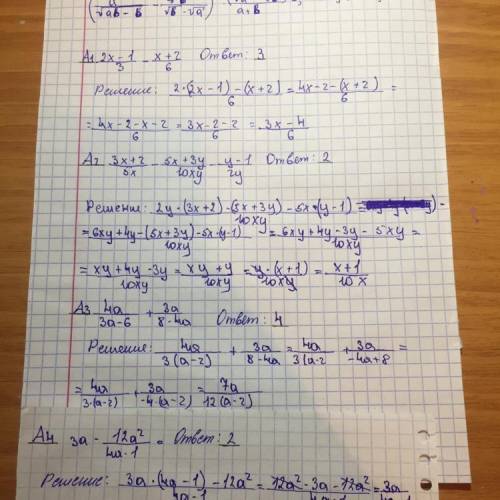 A1 (2x-1)/3 - (x+2)/6 Ответ: 3
Решение: (2·(2x-1)-(x+2))/6 = (4x-2-(x+2))/6 =
= (4x-2-x-2)/6 = (3x-2-2)/6 = (3x-4)/6
A2 (3x+2)/5x - (5x+3y)/10xy - (y-1)/2y Ответ: 2
Решение: (2y·(3x+2)-(5x+3y)-5x·(y-1))/10xy =
= (6xy+4y-(5x+3y)-5x·(y-1))/10xy = (6xy+4y-3y-5xy)/10xy =
= (xy+4y-3y)/10xy = (xy+y)/10xy = (y·(x+1))/10xy = (x+1)/10x
A3 4a/(3a-6) + 3a/(8-4a) Ответ: 4
Решение: 4a/3(a-2) + 3a/(8-4a) = 4a/3(a-2 + 3a/(-4a+8) =
= 4a/3·(a-2) + 3a/-4·(a-2) = 7a/12(a-2)
A4 3a - 12a²/(4a-1) = Ответ: 2
Решение: (3a·(4a-1)-12a²)/(4a-1) = 12a²-3a-12a² = 3a